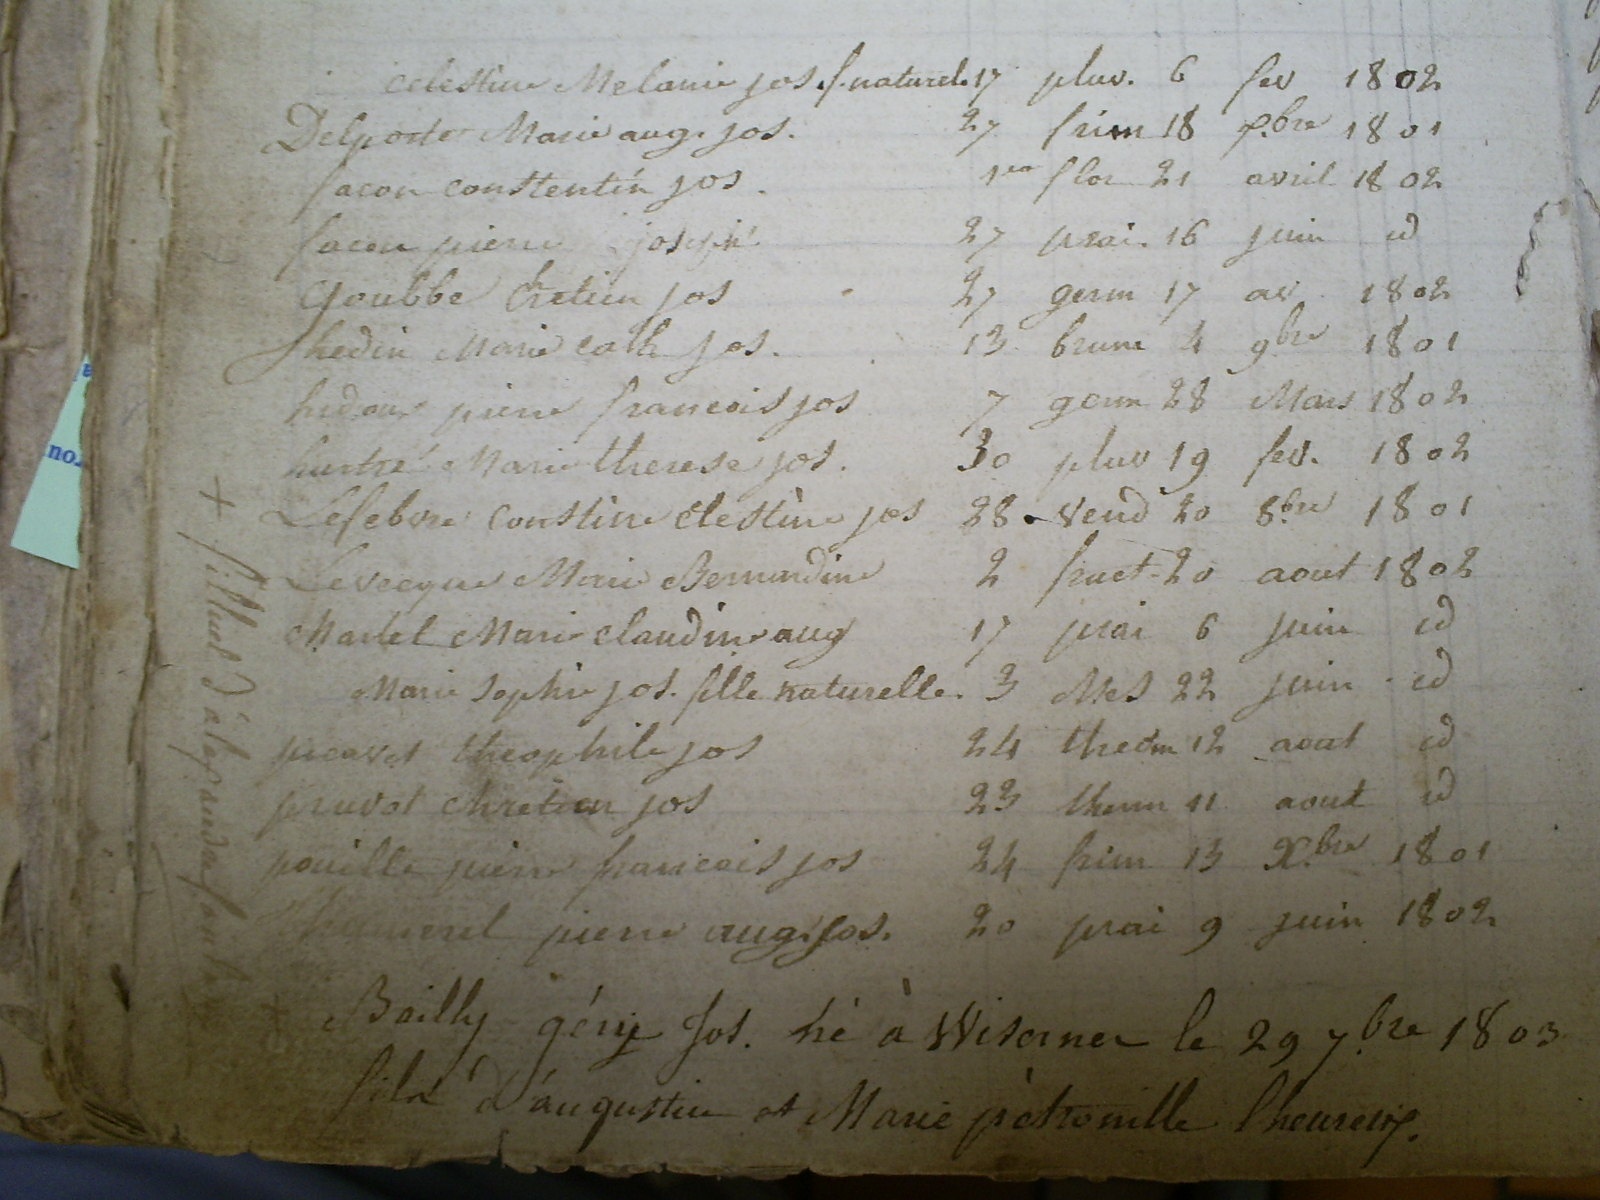 celestine Melanie jos. f. naturel. 17 pluv. 6 fev 1802
Delporte Marie aug. jos. 27 frim 18 Xbre 1801
facon constentin jos. 1er flor 21 avril 1802
facon pierre joseph 27 prai. 16 juin id
Goubbe Chretien jos 27 germ 17 av. 1802
hedin Marie cath jos. 13 brum 4 9bre 1801
hidoux pierre francois jos 7 germ 28 Mars 1802
Marie therese jos. 30 pluv 19 fev. 1802
Lefebvre constine Clestine jos 28 vend 20 8bre 1801
Levecque Marie Bernardine 2 fruct 20 aout 1802
Martel Marie claudine aug 17 prai 6 juin id
Marie Sophie jos. fille naturelle. 3 Mes 22 juin id
theophile jos 24 12 aout id
pruvot chretien jos 23 therm 11 aout id
pouille pierre francois jos 24 frim 13 Xbre 1801
pierre aug. jos. 20 prai 9 juin 1802
Bailly géry Jos. né à Wisernes le 29 7bre 1803
fils d'augustin et Marie pétronille lheureux.
+ filleul d'